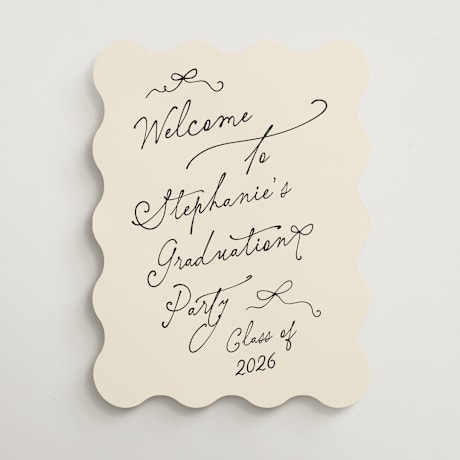 Welcome
to
Stephanie's
Graduation
Party
Class of
2026